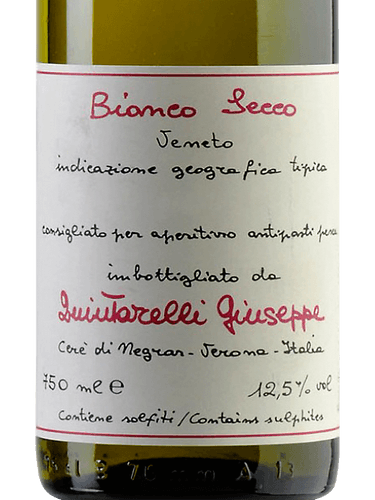 Bianco Secco
Veneto
indicazione geografica tipica
consigliato per aperitivo antipasti pesce
imbottigliato da
Quintarelli Giuseppe
Cerè di Negrar - Verona - Italia
750 ml e 12,5% vol
Contiene solfiti/Contains sulphites
70 mm A 13